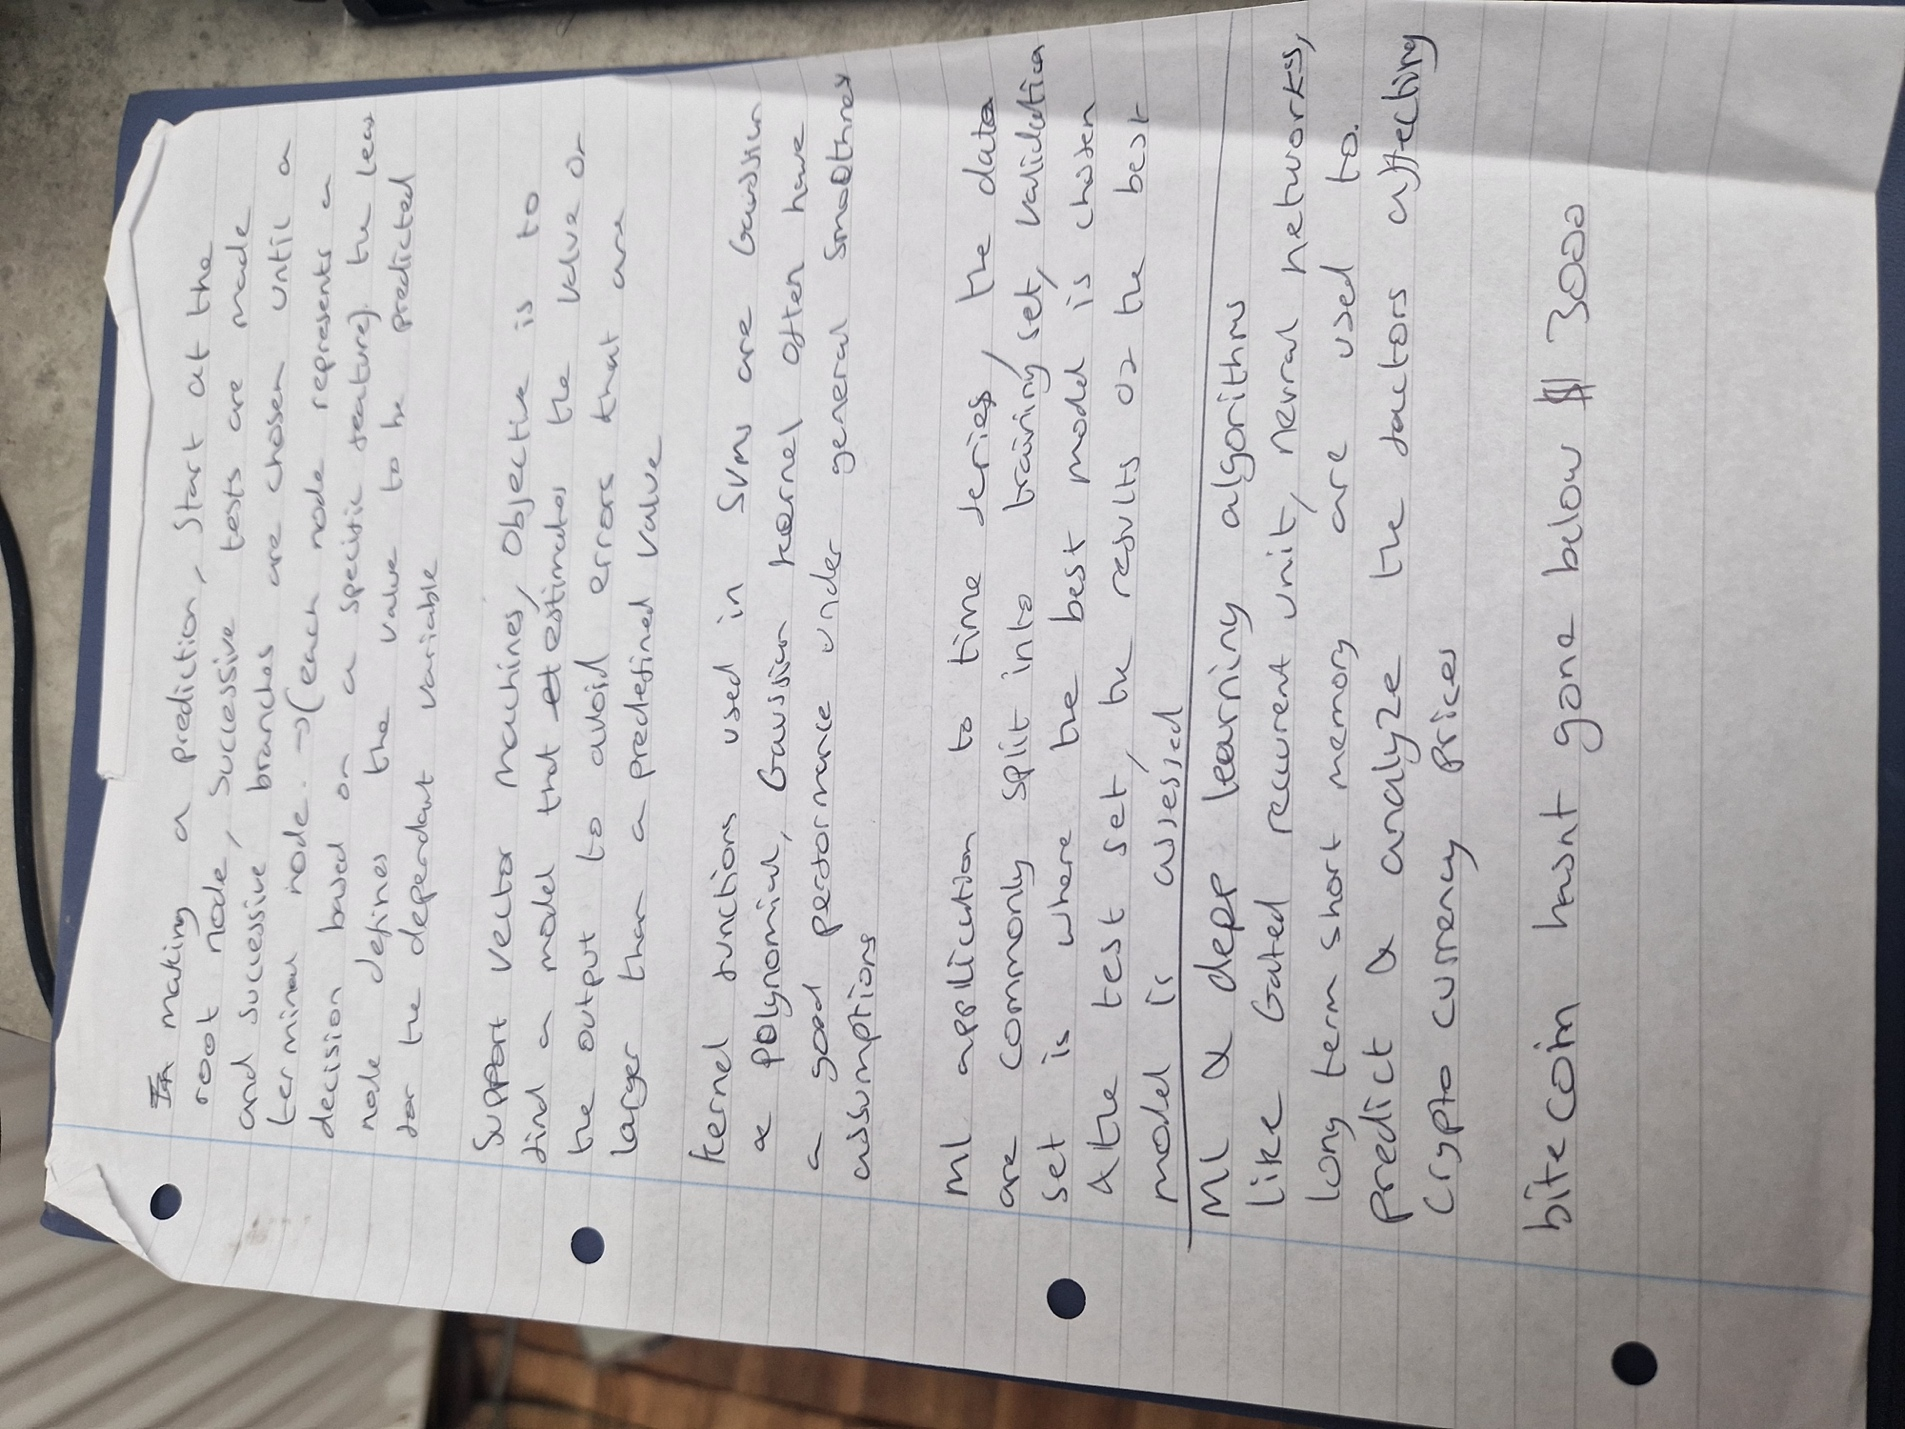 In making a prediction, Start at the
root node, successive tests are made
and successive branches are chosen until a
terminal node. → (each node represents a
decision based on a specific feature) the leaf
node defines the value to be predicted
for the dependant variable
Support vector machines, objective is to
find a model that et estimates the value of
the output to avoid errors that are
larger than a predefined value
Kernel functions used in SVMs are Gaussian
& Polynomial, Gaussian kernel often have
a good performance under general smoothness
assumptions
ML application to time series, the data
are commonly split into training set, validation
set is where the best model is chosen
& the test set, the results of the best
model is assessed
ML & depp learning algorithms
like Gated recurrent unit, neural networks,
long term short memory are used to.
predict & analyze the factors affecting
Crypto currency prices
bite coin hasnt gone below $ 3000